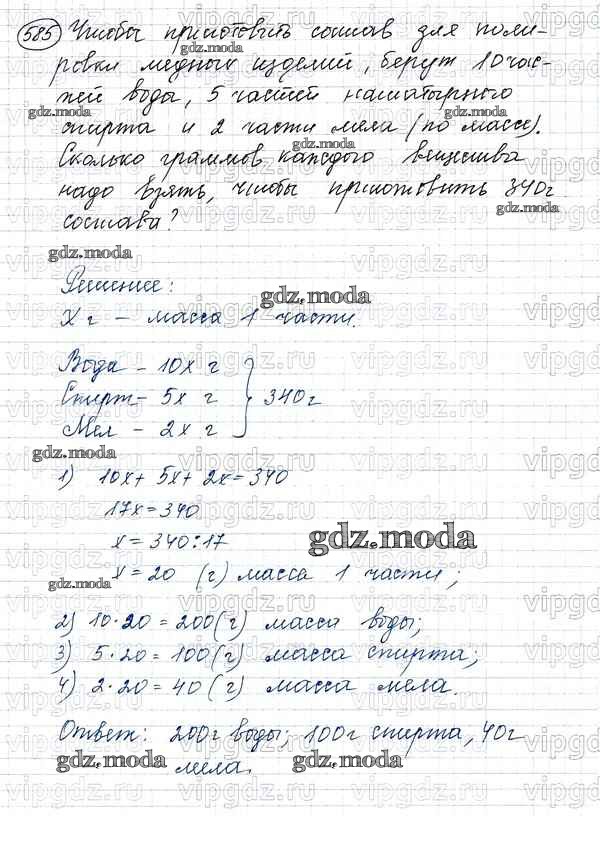 585 Чтобы приготовить состав для поли-
ровки медных изделий, берут 10 час-
тей воды, 5 частей нашатырного
спирта и 2 части мела (по массе).
Сколько граммов каждого вещества
надо взять, чтобы приготовить 340г
состава?
Решение:
X г – масса 1 части.
Вода – 10x г
Спирт – 5x г } 340г
Мел – 2x г
1) 10x + 5x + 2x = 340
17x = 340
x = 340:17
x = 20 (г) масса 1 части;
2) 10·20 = 200(г) масса воды;
3) 5·20 = 100(г) масса спирта;
4) 2·20 = 40(г) масса мела.
Ответ: 200г воды; 100г спирта, 40г
мела.
gdz.moda
vipgdz.ru